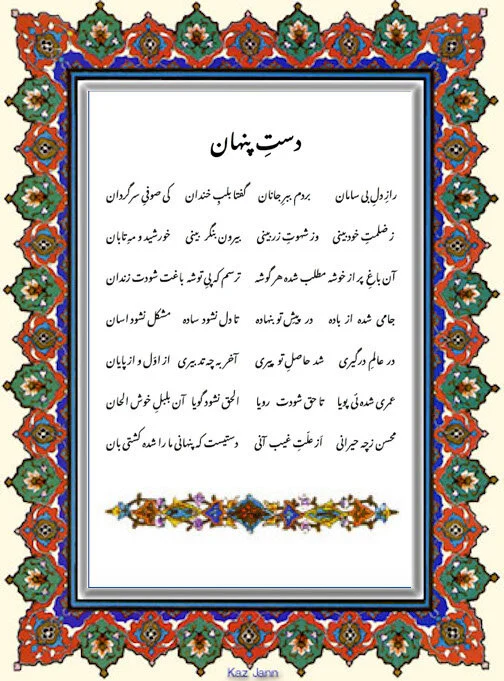 دستِ پنهان
رازِ دلِ بی سامان بردم ببرِ جانان گفتا بلبِ خندان کی صوفیِ سرگردان
ز ضلمتِ خود بینی وز شهوتِ زر بینی بیرون بنگر بینی خورشید و مهِ تابان
آن باغِ پر از خوشه مطلب شده هر گوشه ترسم که پی توشه باغت شودت زندان
جامی شده از باده در پیشِ تو بنهاده تا دل نشود ساده مشکل نشود اسان
در عالمِ درگیری شد حاصلِ تو پیری آخر به چه تدبیری از اوّل و از پایان
عمری شده ئی پویا تا حق شودت رویا الحق نشود گویا آن بلبلِ خوش الحان
محسن زچه حیرانی از علّتِ غیب آنی دستیست که پنهانی ما را شده کشتی بان
Kaz Jann